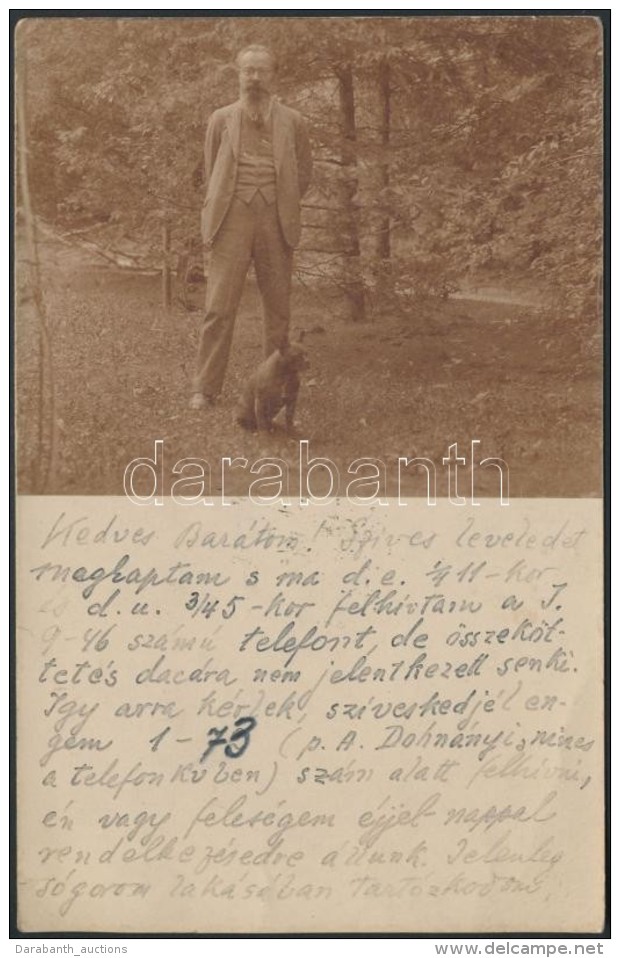 darabanth
Kedves Barátom! Szives leveledet
megkaptam s ma d.e. 1/4 11-kor
és d.u. 3/4 5-kor felhívtam a J.
9-46 számú telefont, de összeköt-
tetés dacára nem jelentkezett senki.
Igy arra kérlek, sziveskedjél en-
gem 1-73 (p. A. Dohnányi, nincs
a telefonkvben) szám alatt felhívni,
én vagy feleségem éjjel-nappal
rendelkezésedre állunk. Jelenleg
sógorom lakásában tartózkodom.
Darabanth_auctions
www.delcampe.net